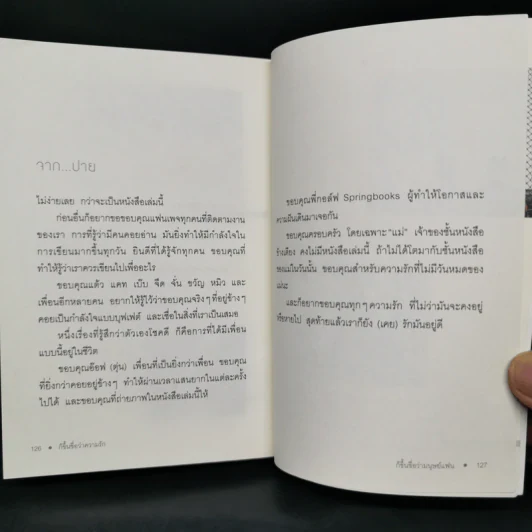 จาก...ปาย
ไม่ง่ายเลย กว่าจะเป็นหนังสือเล่มนี้
ก่อนอื่นก็อยากขอขอบคุณแฟนเพจทุกคนที่ติดตามงาน
ของเรา การที่รู้ว่ามีคนคอยอ่าน มันยิ่งทำให้มีกำลังใจใน
การเขียนมากขึ้นทุกวัน ยินดีที่ได้รู้จักทุกคน ขอบคุณที่
ทำให้รู้ว่าเราควรเขียนไปเพื่ออะไร
ขอบคุณแล้ว แคท เบ๊บ จี๊ด จั่น ขวัญ หมิว และ
เพื่อนอีกหลายคน อยากให้รู้ไว้ว่าขอบคุณจริงๆ ที่อยู่ข้างๆ
คอยเป็นกำลังใจแบบบุฟเฟต์ และเชื่อในสิ่งที่เราเป็นเสมอ
หนึ่งเรื่องที่รู้สึกว่าตัวเองโชคดี ก็คือการที่ได้มีเพื่อน
แบบนี้อยู่ในชีวิต
ขอบคุณอ๊อฟ (ตุ่น) เพื่อนที่เป็นยิ่งกว่าเพื่อน ขอบคุณ
ที่ยิ่งกว่าคอยอยู่ข้างๆ ทำให้ผ่านเวลาแสนยากในแต่ละครั้ง
ไปได้ และขอบคุณที่ถ่ายภาพในหนังสือเล่มนี้ให้
126 • ก็ขึ้นชื่อว่าความรัก
ขอบคุณพี่กอล์ฟ Springbooks ผู้ทำให้โอกาสและ
ความฝันเดินมาเจอกัน
ขอบคุณครอบครัว โดยเฉพาะ "แม่" เจ้าของชั้นหนังสือ
ข้างเตียง คงไม่มีหนังสือเล่มนี้ ถ้าไม่ได้โตมากับชั้นหนังสือ
ของแม่ในวันนั้น ขอบคุณสำหรับความรักที่ไม่มีวันหมดของ
แม่นะ
และก็อยากขอบคุณทุกๆ ความรัก ที่ไม่ว่ามันจะคงอยู่
หรือหายไป สุดท้ายแล้วเราก็ยัง (เคย) รักมันอยู่ดี
ก็ขึ้นชื่อว่ามนุษย์แฟน • 127